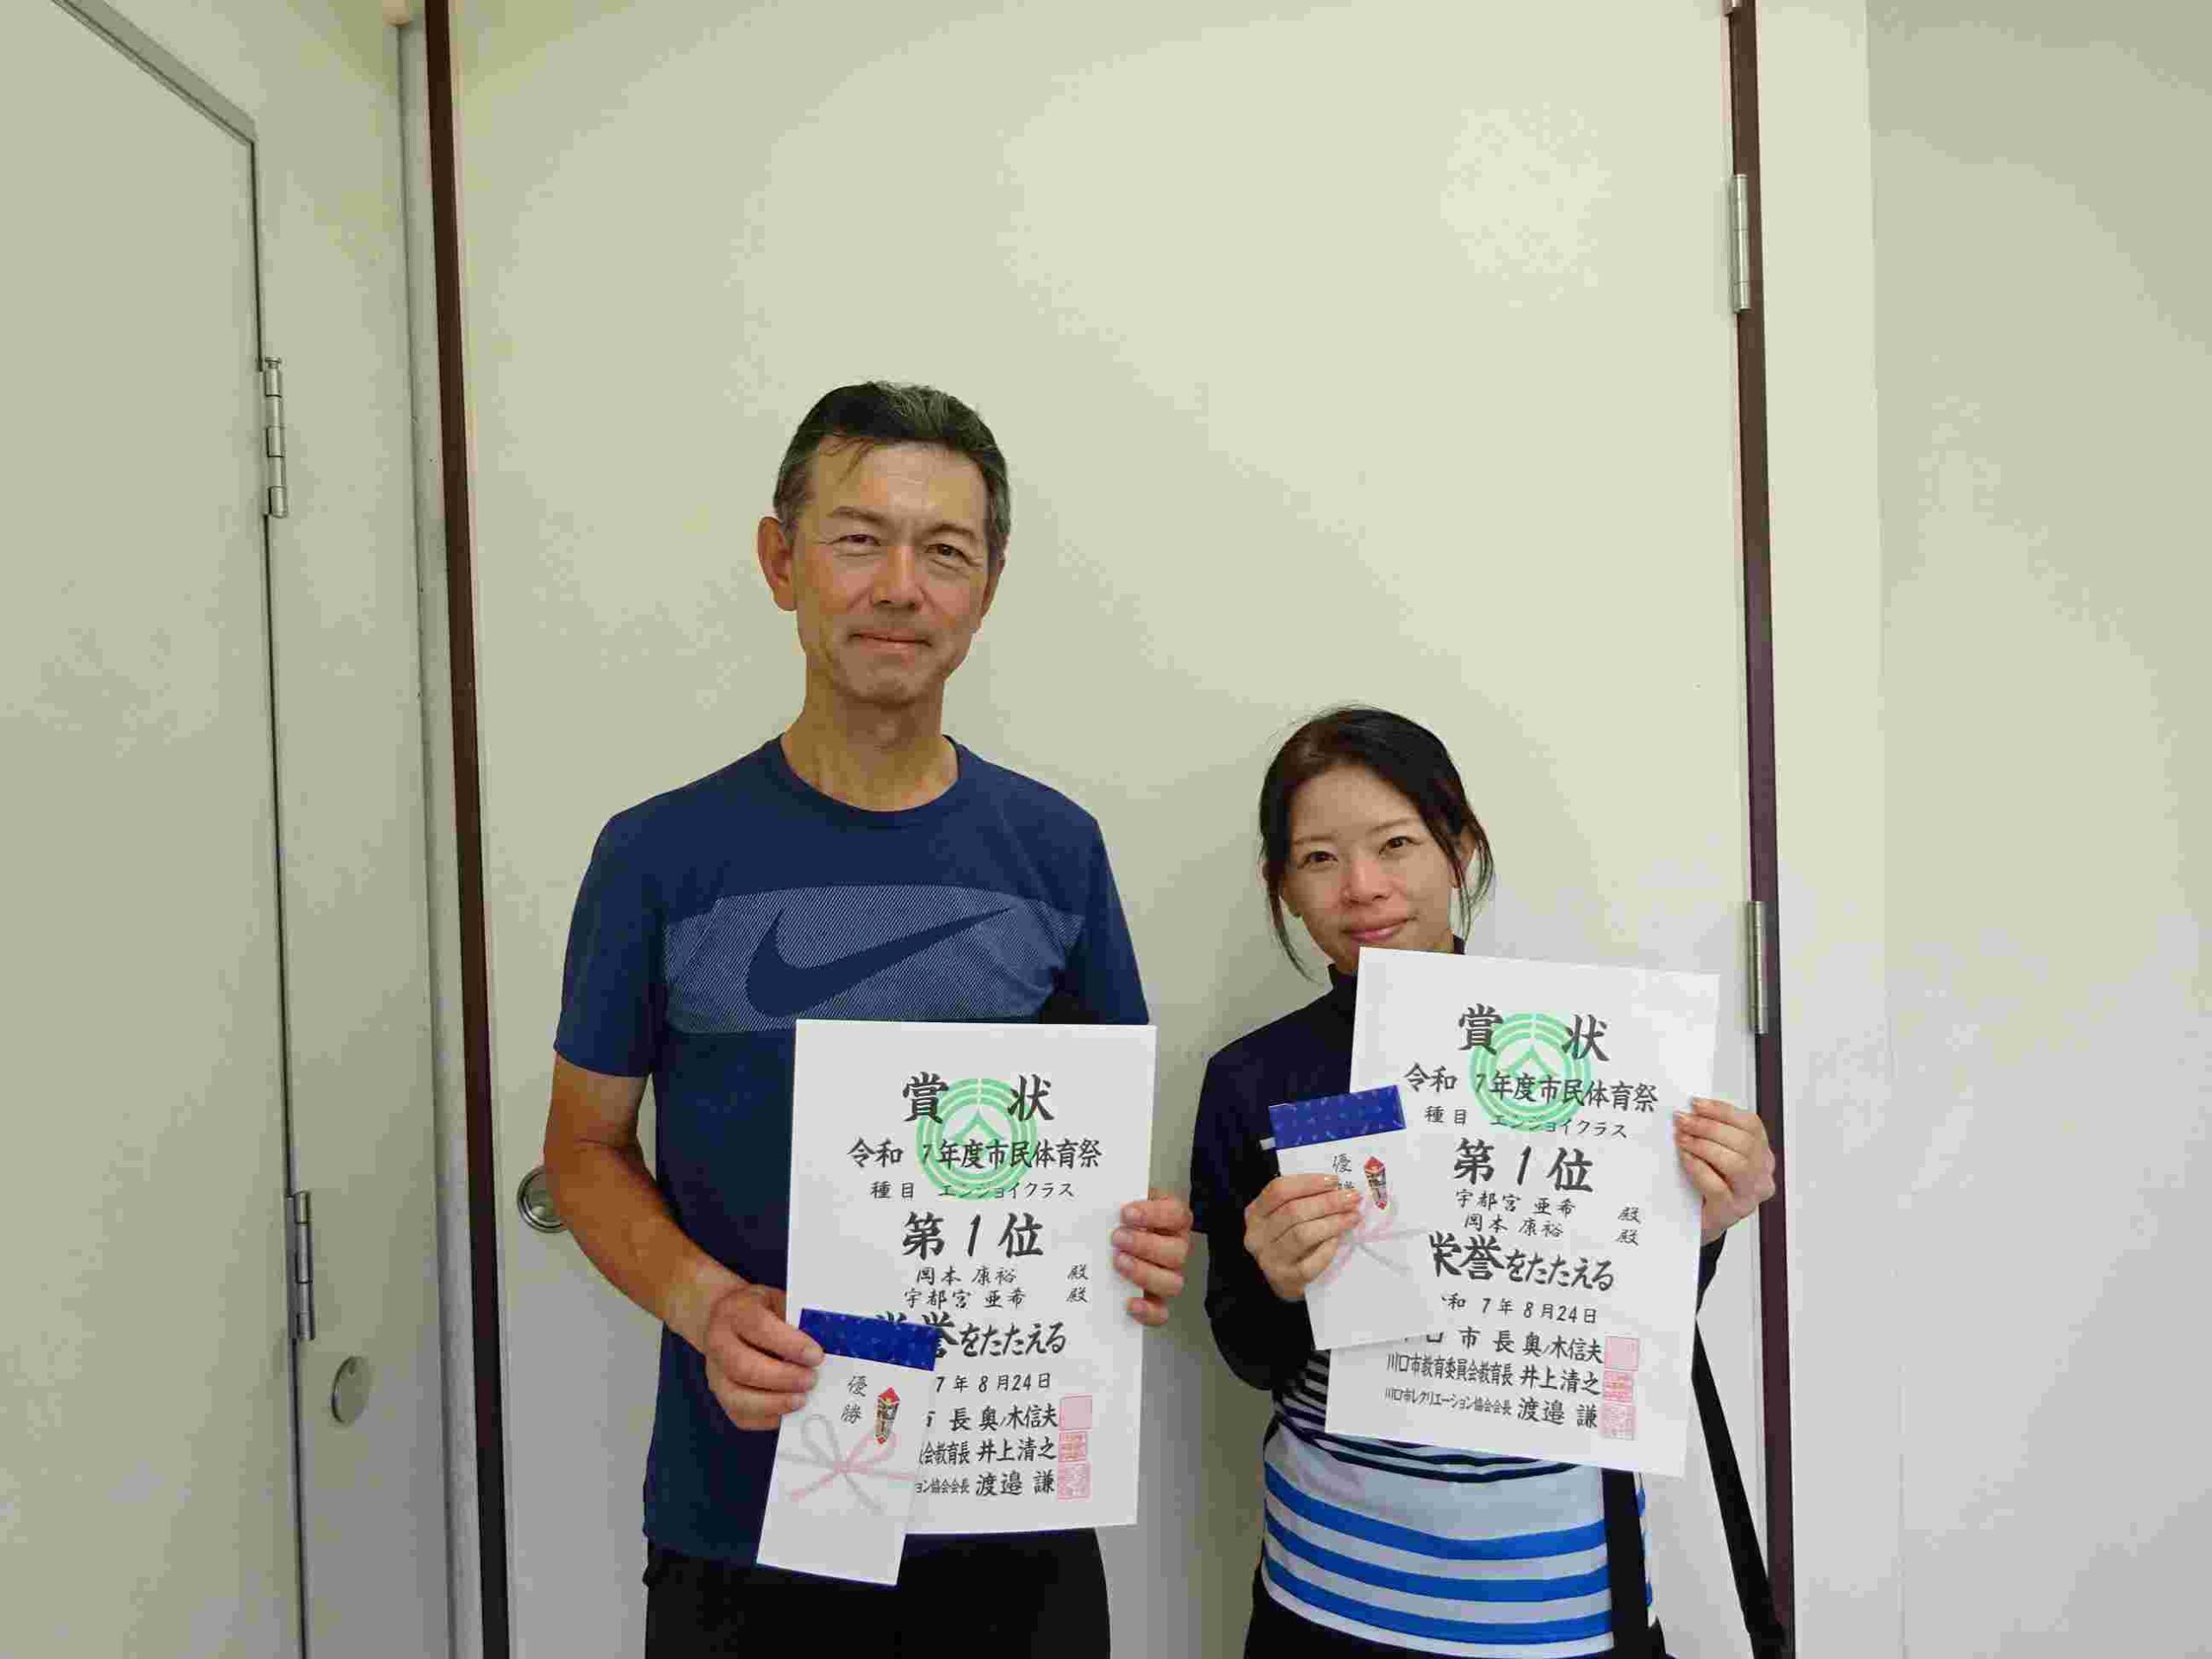 賞 状
令和 7年度市民体育祭
種目 エンジョイクラス
第1位
岡本 康裕 殿
宇都宮 亜希 殿
栄誉をたたえる
7年 8月24日
市 長 奥ノ木信夫
会教育長 井上清之
ョン協会会長 渡邉 謙
優勝
賞 状
令和 7年度市民体育祭
種目 エンジョイクラス
第1位
宇都宮 亜希 殿
岡本 康裕 殿
栄誉をたたえる
和 7年 8月24日
口 市 長 奥ノ木信夫
川口市教育委員会教育長 井上清之
川口市レクリエーション協会会長 渡邉 謙
優勝